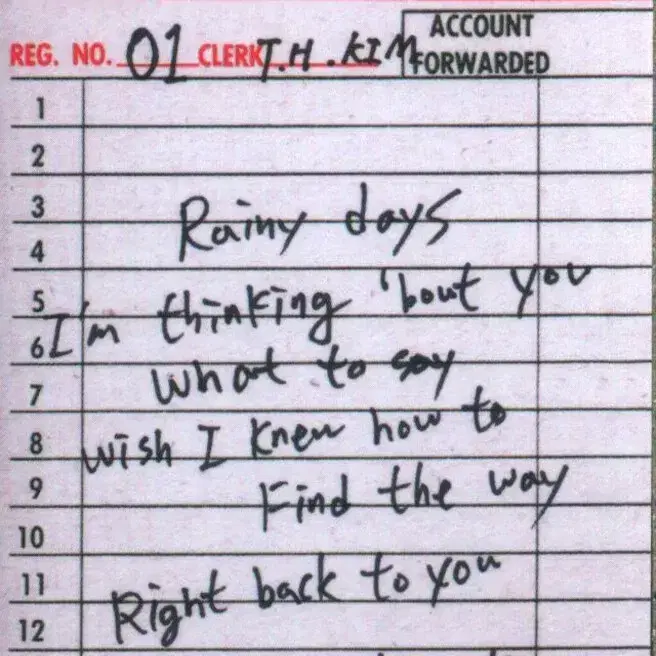 REG. NO. 01 CLERK T.H.KIM
ACCOUNT
FORWARDED
1
2
3
Rainy days
4
5
I'm thinking 'bout you
6
what to say
7
wish I knew how to
8
Find the way
9
10
Right back to you
11
12